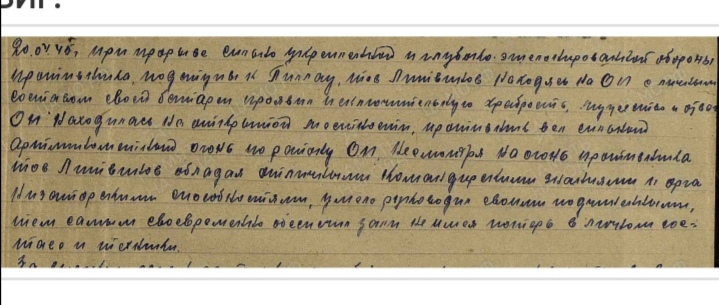 ВИГ:
20.04.45г. при прорыве сильно укрепленной и глубоко-эшелонированной обороны
противника, подступы к Пиллау, тов Литвинов находясь на ОП с личным
составом своей батареи проявил исключительную храбрость, мужество и отваг
ОП находилась на открытой местности, противник вел сильный
Артиллерийский огонь по району ОП, несмотря на огонь противника
тов Литвинов обладая отличными командирскими знаниями и орга
низаторскими способностями, умело руководил своими подчиненными,
тем самым своевременно обеспечил не имея потерь в личном сос-
таве и технике.